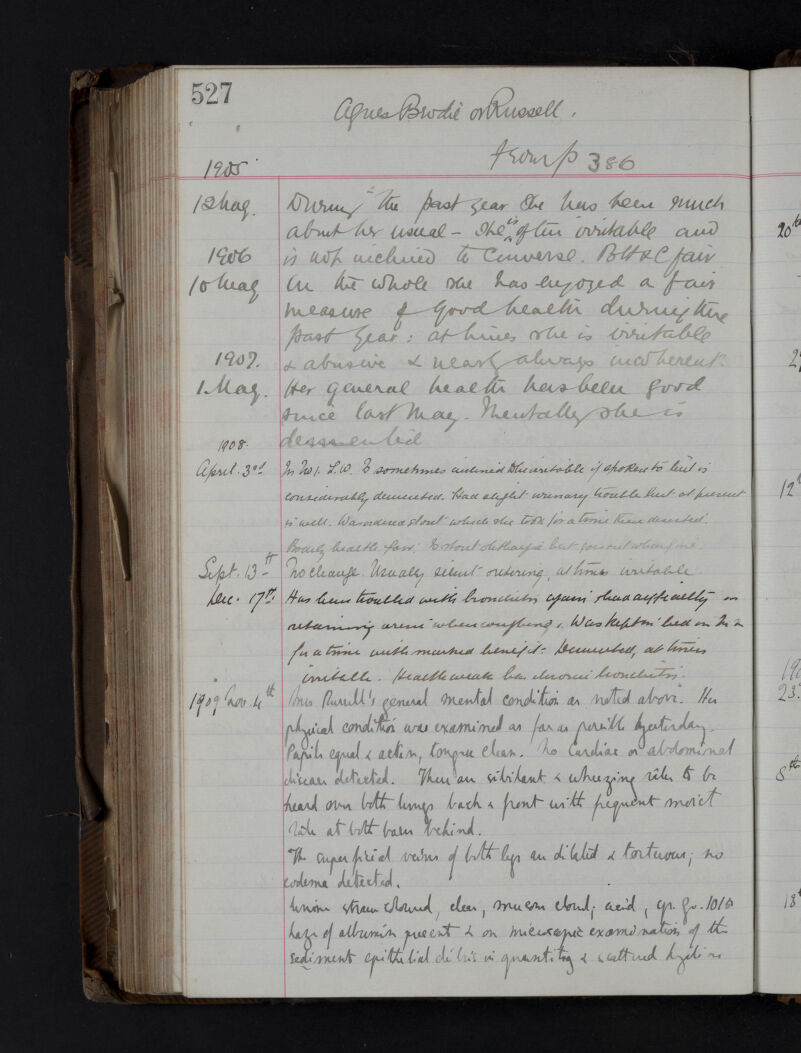 527
Agnes Brodie or Russell.
from p 386
1905
12 May. During the past year she has been much
about her usual - She is often irritable and
1906 is not inclined to converse. B H & C fair
10 May On the whole she has enjoyed a fair
measure of good health during the
past year: at times she is irritable
1907. & abusive & nearly always incoherent.
1 May. Her general health has been good
since last May. Mentally she is
1908. demented
April 3rd In No 1. L.W. Is sometimes inclined to be irritable if spoken to but is
considerably demented. Had slight urinary trouble but at present
is well. Was ordered stout which she took for a time then desisted.
Bodily health fair; Is stout but goes out when fine.
Sept. 13th No change. Usually silent & retiring, at times irritable.
Dec. 17th Has been troubled with bronchitis again & had difficulty in
retaining urine when coughing. Was kept in bed in
for a time with marked benefit. Demented, at times
irritable. Health weak has chronic bronchitis.
1909 Nov. 4th Mrs Russell's general mental condition as noted above. Her
physical condition was examined as far as possible yesterday.
Pupils equal & active, tongue clean. No cardiac or abdominal
disease detected. There are sibilant & wheezing râles to be
heard over both lungs back & front with frequent moist
râle at both bases behind.
The superficial veins of both legs are dilated & tortuous; no
oedema detected.
Urine straw coloured, clear, mucous cloud; acid, sp. gr. 1016
haze of albumin present & on microscopic examination of the
sediment epithelial débris in quantity & scattered hyaline
20th
12th
23.
8th
18th